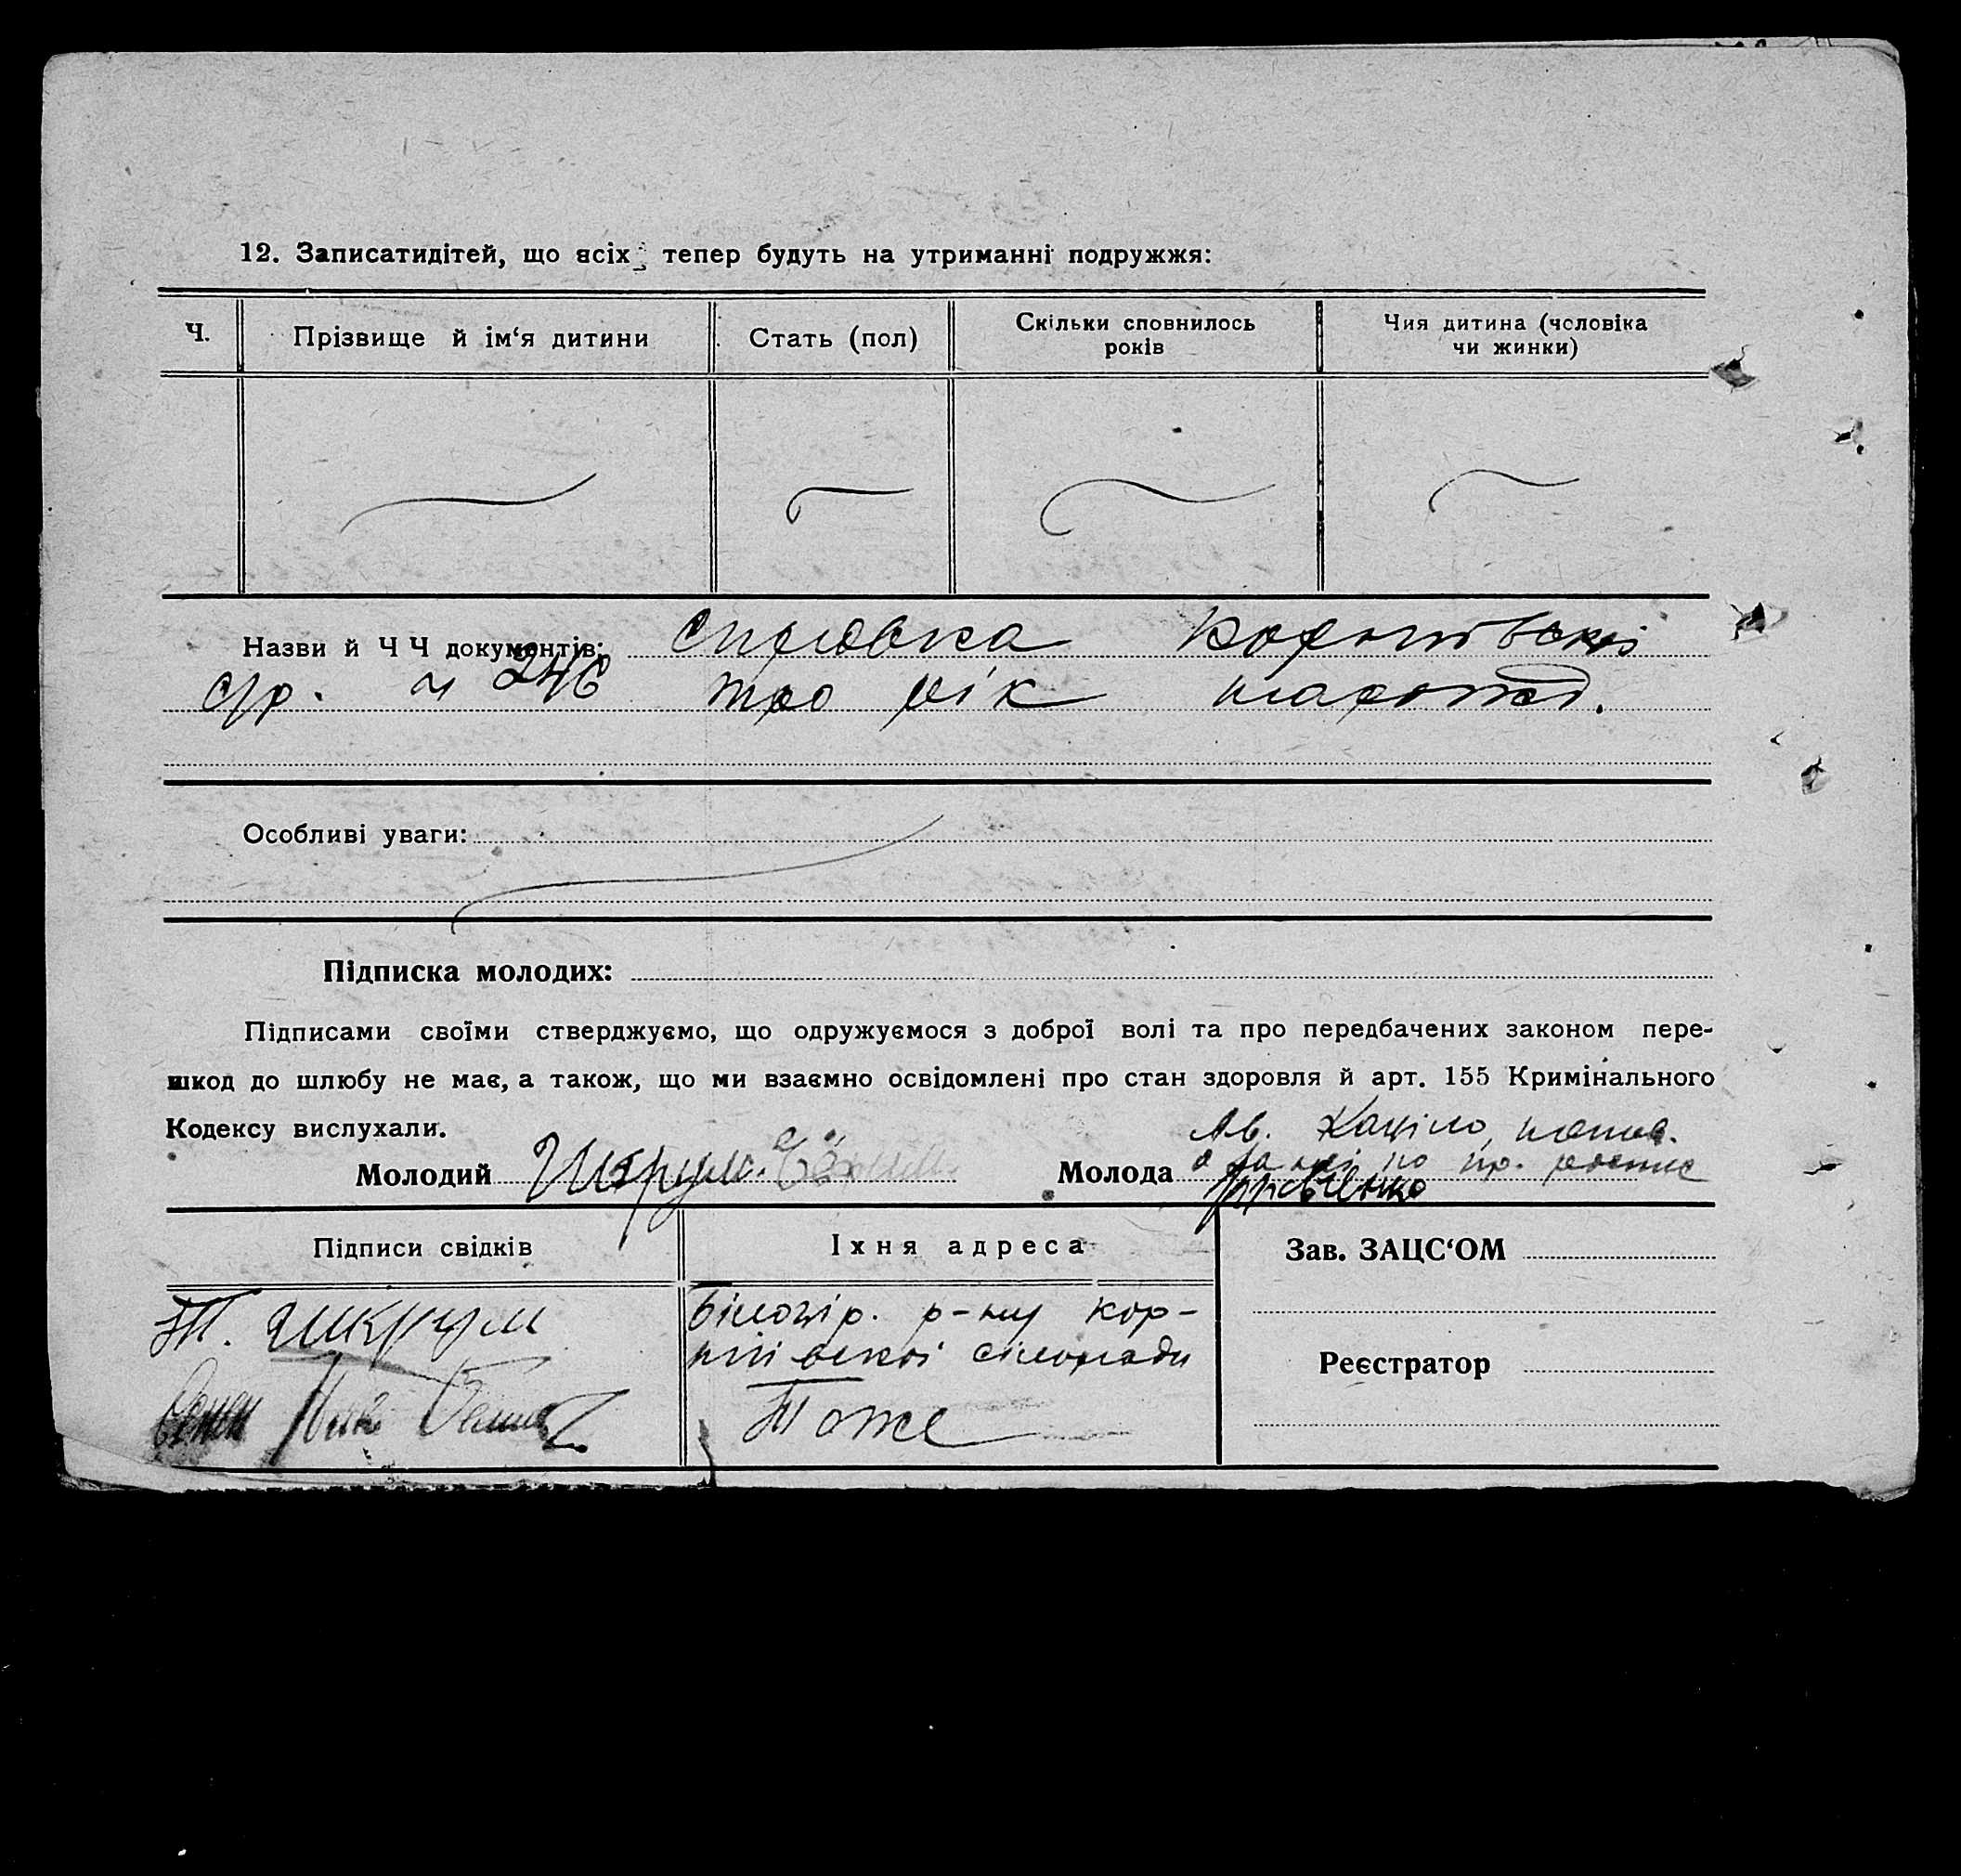 12. Записатидітей, що всіх тепер будуть на утриманні подружжя:
Ч.
Прізвище й ім‘я дитини
Стать (пол)
Скільки сповнилось
років
Чия дитина (чоловіка
чи жинки)
Назви й Ч Ч документів: справка
с/р. 246 про рік
Особливі уваги:
Підписка молодих:
Підписами своїми стверджуємо, що одружуємося з доброї волі та про передбачених законом пере-
шкод до шлюбу не має, а також, що ми взаємно освідомлені про стан здоровля й арт. 155 Кримінального
Кодексу вислухали.
Молодий
Молода
Підписи свідків
Їхня адреса
Зав. ЗАЦС‘ОМ
Т. Шкрум
Білозір. р-ну кор-
сільради
Реєстратор
Тоже